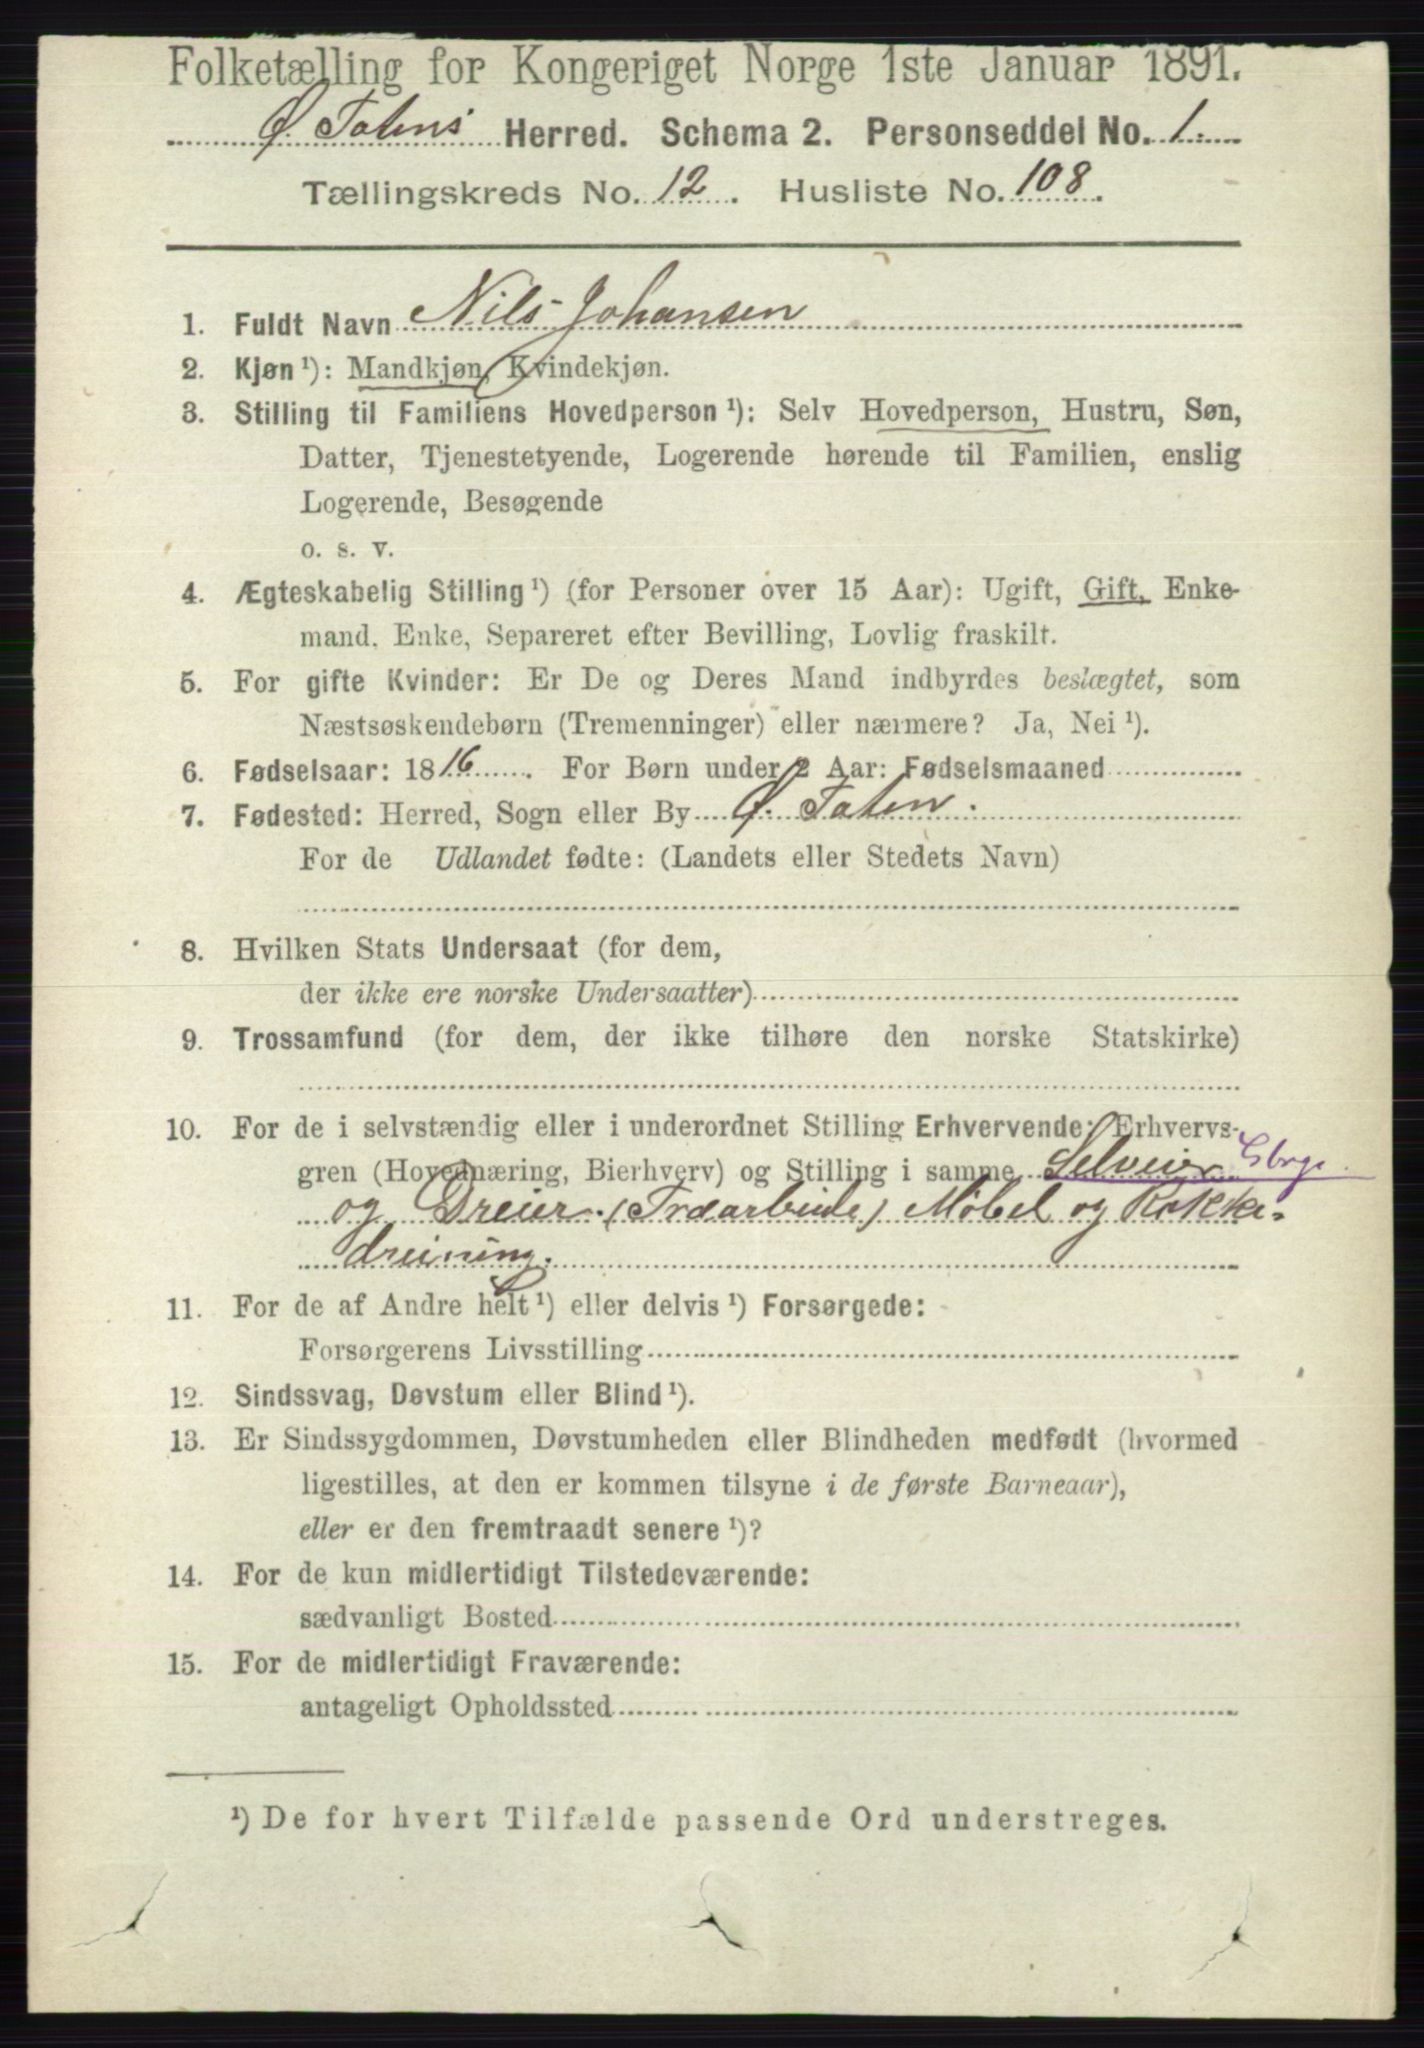 Folketælling for Kongeriget Norge 1ste Januar 1891.
Ø. Totens Herred. Schema 2. Personseddel No. 1.
Tællingskreds No. 12. Husliste No. 108.
1. Fuldt Navn Nils Johansen
2. Kjøn ¹): Mandkjøn, Kvindekjøn.
3. Stilling til Familiens Hovedperson ¹): Selv Hovedperson, Hustru, Søn,
Datter, Tjenestetyende, Logerende hørende til Familien, enslig
Logerende, Besøgende
o. s. v.
4. Ægteskabelig Stilling ¹) (for Personer over 15 Aar): Ugift, Gift, Enke-
mand, Enke, Separeret efter Bevilling, Lovlig fraskilt.
5. For gifte Kvinder: Er De og Deres Mand indbyrdes beslægtet, som
Næstsøskendebørn (Tremenninger) eller nærmere? Ja, Nei ¹).
6. Fødselsaar: 1816. For Børn under 2 Aar: Fødselsmaaned
7. Fødested: Herred, Sogn eller By Ø. Toten.
For de Udlandet fødte: (Landets eller Stedets Navn)
8. Hvilken Stats Undersaat (for dem,
der ikke ere norske Undersaatter)
9. Trossamfund (for dem, der ikke tilhøre den norske Statskirke)
10. For de i selvstændig eller i underordnet Stilling Erhvervende: Erhvervs-
gren (Hovednæring, Bierhverv) og Stilling i samme Selveier Gbrgr
og Dreier. (Træarbeide) Møbel og Rokke-
dreining.
11. For de af Andre helt ¹) eller delvis ¹) Forsørgede:
Forsørgerens Livsstilling
12. Sindssvag, Døvstum eller Blind ¹).
13. Er Sindssygdommen, Døvstumheden eller Blindheden medfødt (hvormed
ligestilles, at den er kommen tilsyne i de første Barneaar),
eller er den fremtraadt senere ¹)?
14. For de kun midlertidigt Tilstedeværende:
sædvanligt Bosted
15. For de midlertidigt Fraværende:
antageligt Opholdssted
¹) De for hvert Tilfælde passende Ord understreges.